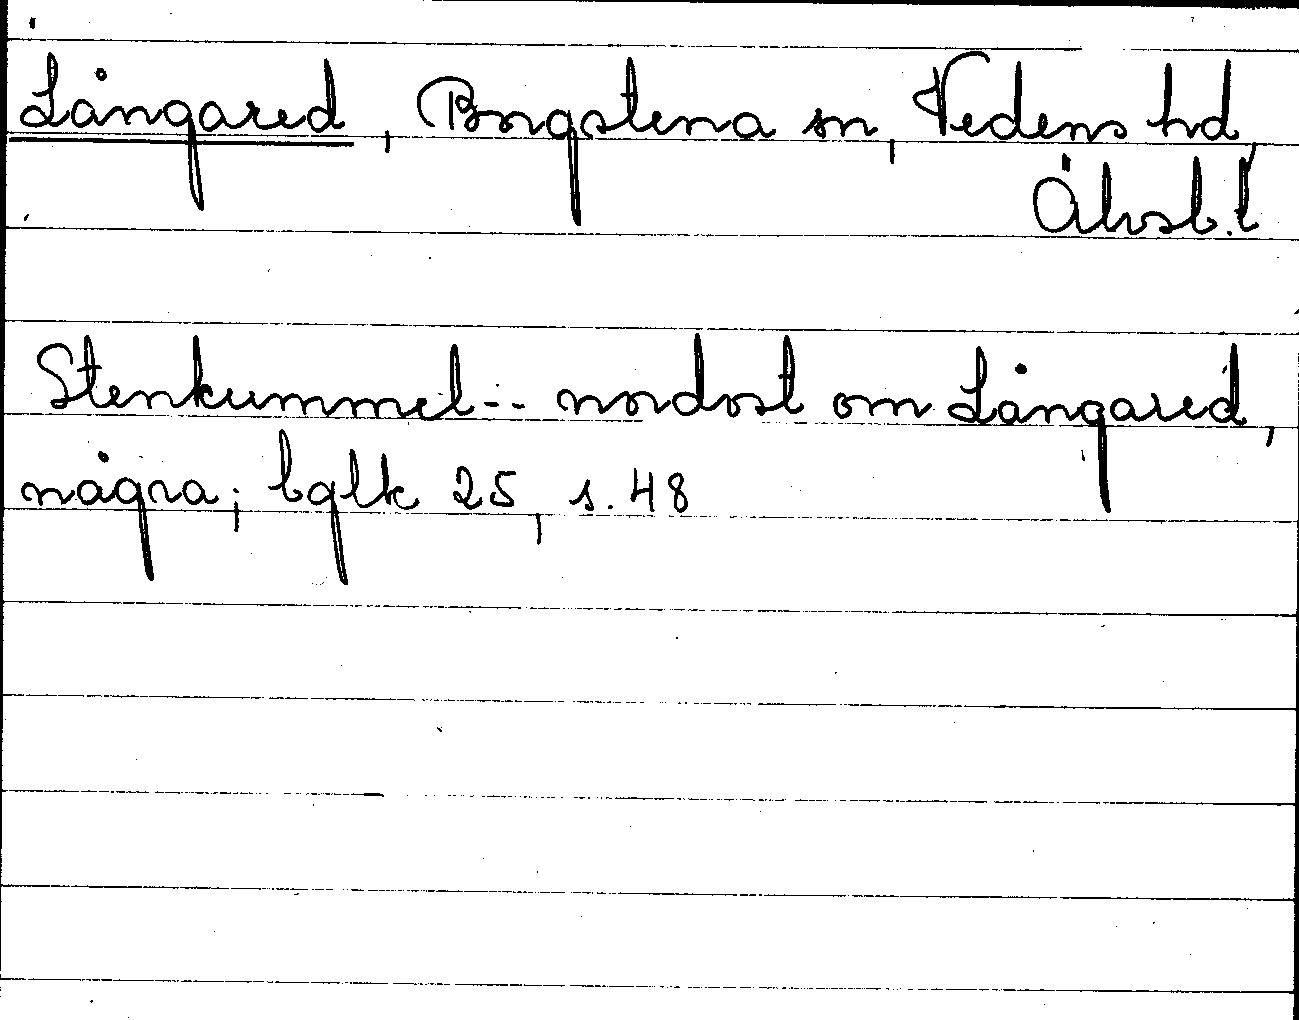 Långared, Borgstena sn, Vedens hd,
Älvsb. l
Stenkummel -- nordost om Långared,
några; bglk 25, s. 48